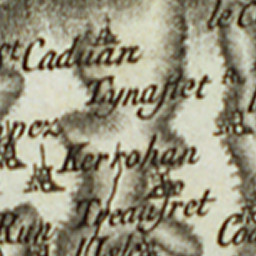 le C
St Caduan
Tynaſtet
opez
Kerrohan
Treauſret
Run
Co
l'Isle